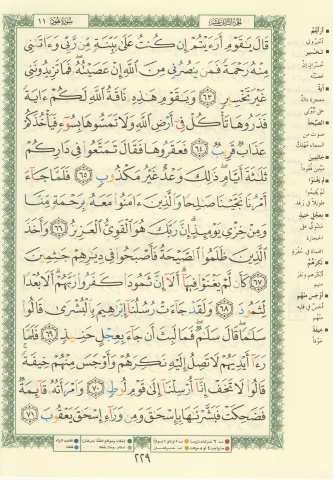 الجزء الثاني عشر
سورة هود ١١
قَالَ يَـٰقَوْمِ أَرَءَيْتُمْ إِن كُنتُ عَلَىٰ بَيِّنَةٍ مِّن رَّبِّى وَءَاتَىٰنِى
مِنْهُ رَحْمَةً فَمَن يَنصُرُنِى مِنَ ٱللَّهِ إِنْ عَصَيْتُهُۥ فَمَا تَزِيدُونَنِى
غَيْرَ تَخْسِيرٍ ٦٣ وَيَـٰقَوْمِ هَـٰذِهِۦ نَاقَةُ ٱللَّهِ لَكُمْ ءَايَةً
فَذَرُوهَا تَأْكُلْ فِىٓ أَرْضِ ٱللَّهِ وَلَا تَمَسُّوهَا بِسُوٓءٍ فَيَأْخُذَكُمْ
عَذَابٌ قَرِيبٌ ٦٤ فَعَقَرُوهَا فَقَالَ تَمَتَّعُوا۟ فِى دَارِكُمْ
ثَلَـٰثَةَ أَيَّامٍ ذَٰلِكَ وَعْدٌ غَيْرُ مَكْذُوبٍ ٦٥ فَلَمَّا جَآءَ
أَمْرُنَا نَجَّيْنَا صَـٰلِحًا وَٱلَّذِينَ ءَامَنُوا۟ مَعَهُۥ بِرَحْمَةٍ مِّنَّا
وَمِنْ خِزْىِ يَوْمِئِذٍ إِنَّ رَبَّكَ هُوَ ٱلْقَوِىُّ ٱلْعَزِيزُ ٦٦ وَأَخَذَ
ٱلَّذِينَ ظَلَمُوا۟ ٱلصَّيْحَةُ فَأَصْبَحُوا۟ فِى دِيَـٰرِهِمْ جَـٰثِمِينَ
٦٧ كَأَن لَّمْ يَغْنَوْا۟ فِيهَآ أَلَآ إِنَّ ثَمُودَا۟ كَفَرُوا۟ رَبَّهُمْ أَلَا بُعْدًا
لِّثَمُودَ ٦٨ وَلَقَدْ جَآءَتْ رُسُلُنَآ إِبْرَٰهِيمَ بِٱلْبُشْرَىٰ قَالُوا۟
سَلَـٰمًا قَالَ سَلَـٰمٌ فَمَا لَبِثَ أَن جَآءَ بِعِجْلٍ حَنِيذٍ ٦٩ فَلَمَّا
رَءَآ أَيْدِيَهُمْ لَا تَصِلُ إِلَيْهِ نَكِرَهُمْ وَأَوْجَسَ مِنْهُمْ خِيفَةً
قَالُوا۟ لَا تَخَفْ إِنَّآ أُرْسِلْنَآ إِلَىٰ قَوْمِ لُوطٍ ٧٠ وَٱمْرَأَتُهُۥ قَآئِمَةٌ
فَضَحِكَتْ فَبَشَّرْنَـٰهَا بِإِسْحَـٰقَ وَمِن وَرَآءِ إِسْحَـٰقَ يَعْقُوبَ ٧١
أرأيتم
أخبروني
تخسير
آية
الصيحة
جاثمين
لم يغنوا
بعجل حنيذ
نكرهم
أوجس منهم
خيفة
خوفا
٢٢٩